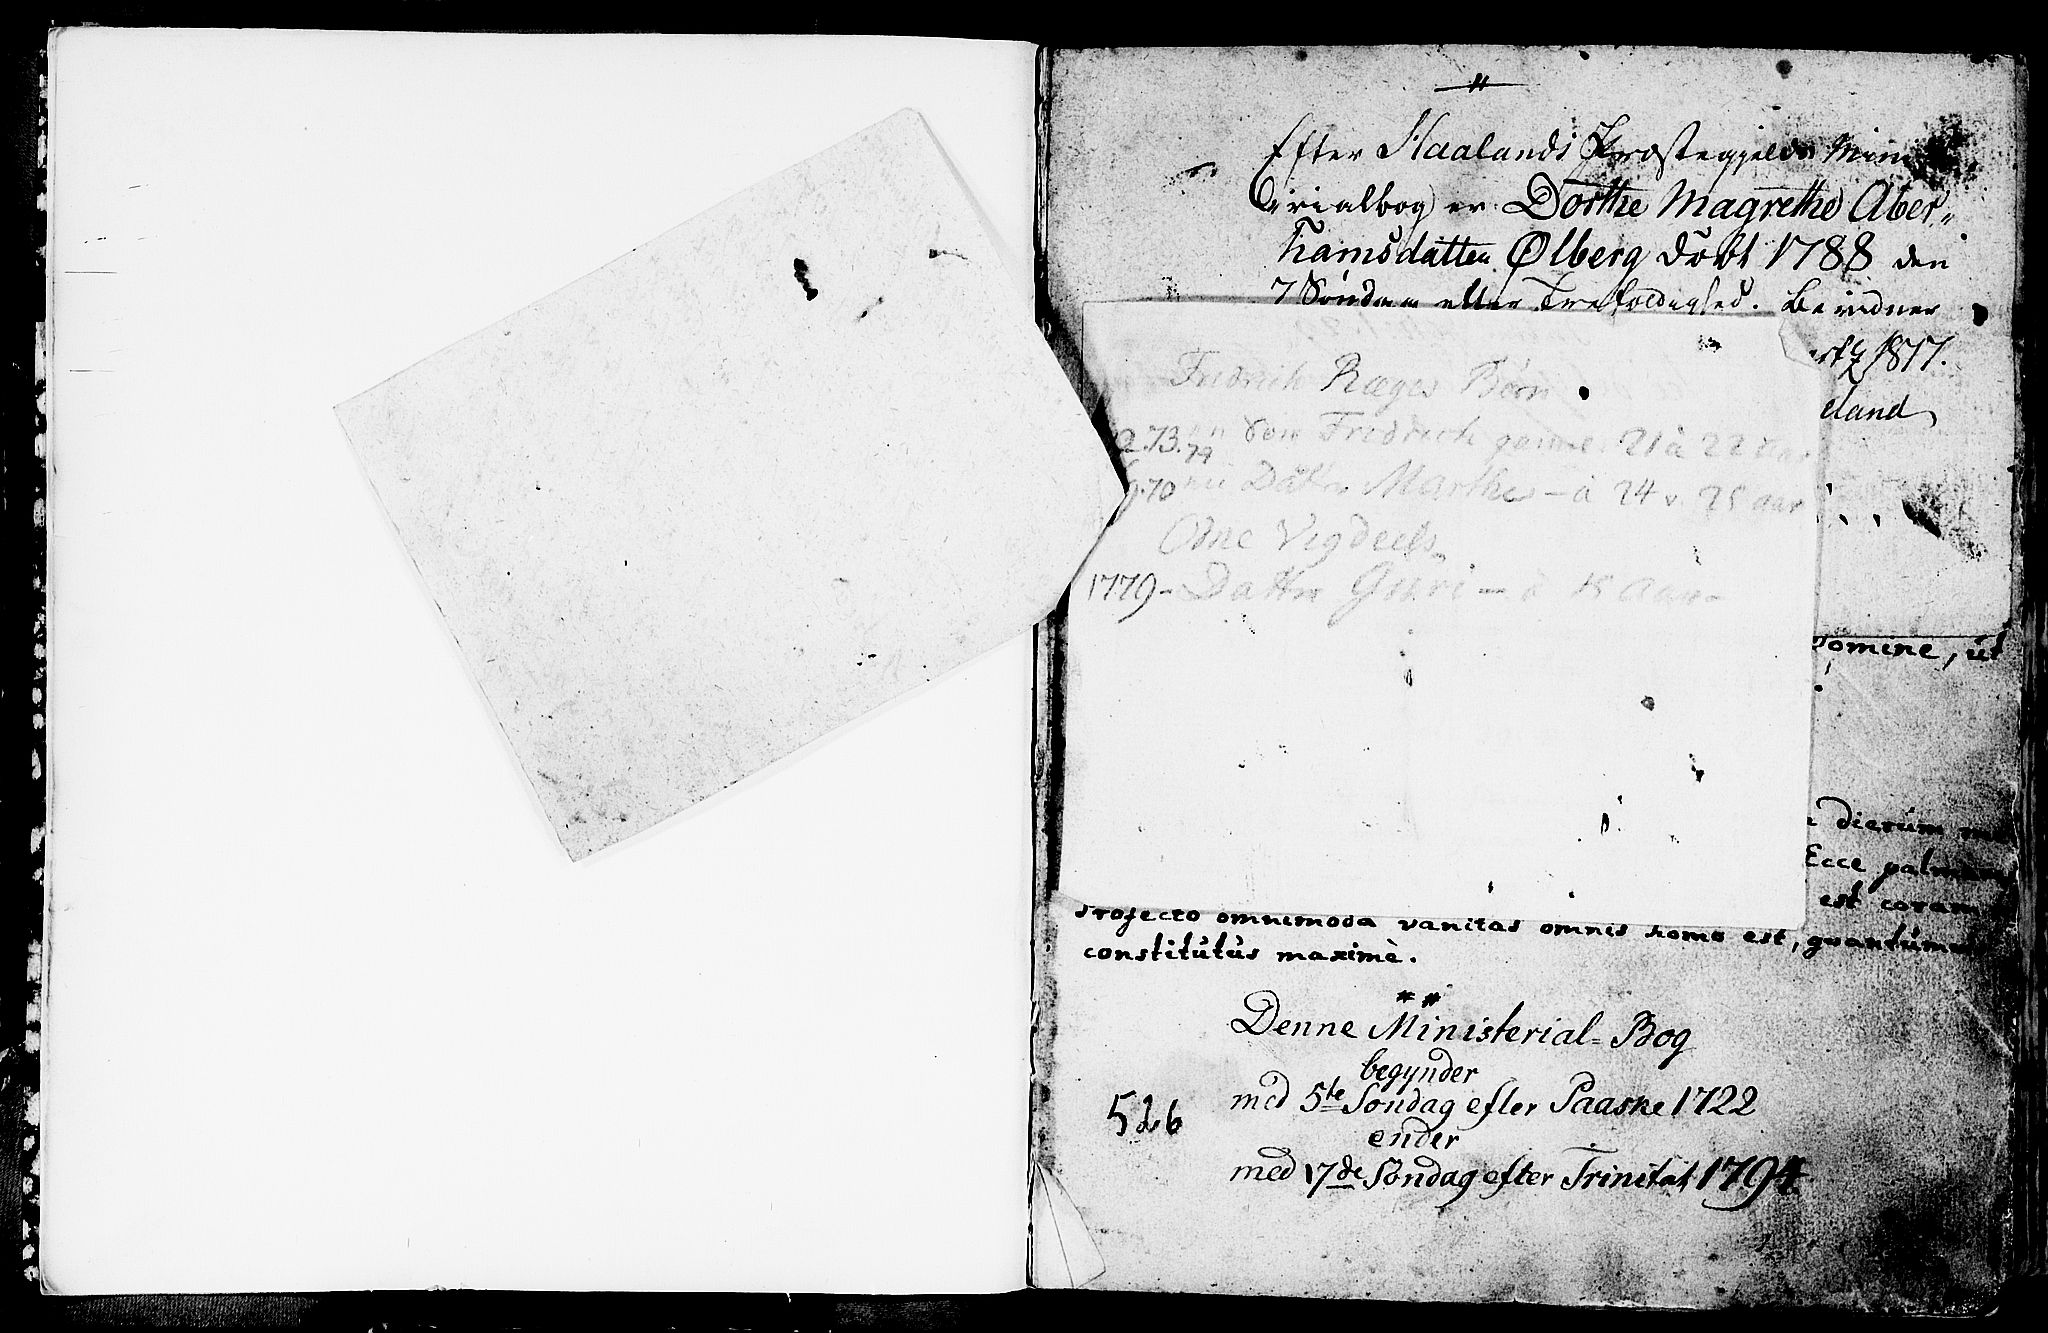 Efter Haalands Præstegjelds Mini
sterialbog er Dorthe Magrethe Aber„
hamsdatter Ølberg döbt 1788 den
7 Söndag efter Trefoldighed. Bevidner
1817.
eland
Fredrich Ræges Börn
73. 74 Son Fredrich gamme 21 à 22 aar
70 Datter Marthe – à 24 v. 25 aar
Odne Vigdeels
1779 – Datter Guri – à 15 Aar –
Domine, ut
dierum
Ecce palmares
est coram
Profecto omnimoda vanitas omnis homo est, quantumvis
constitutus maximè.
Denne Ministerial=Bog
begynder
med 5te Søndag efter Paaske 1722
526
ender
med 17de Søndag efter Trinitat 1794